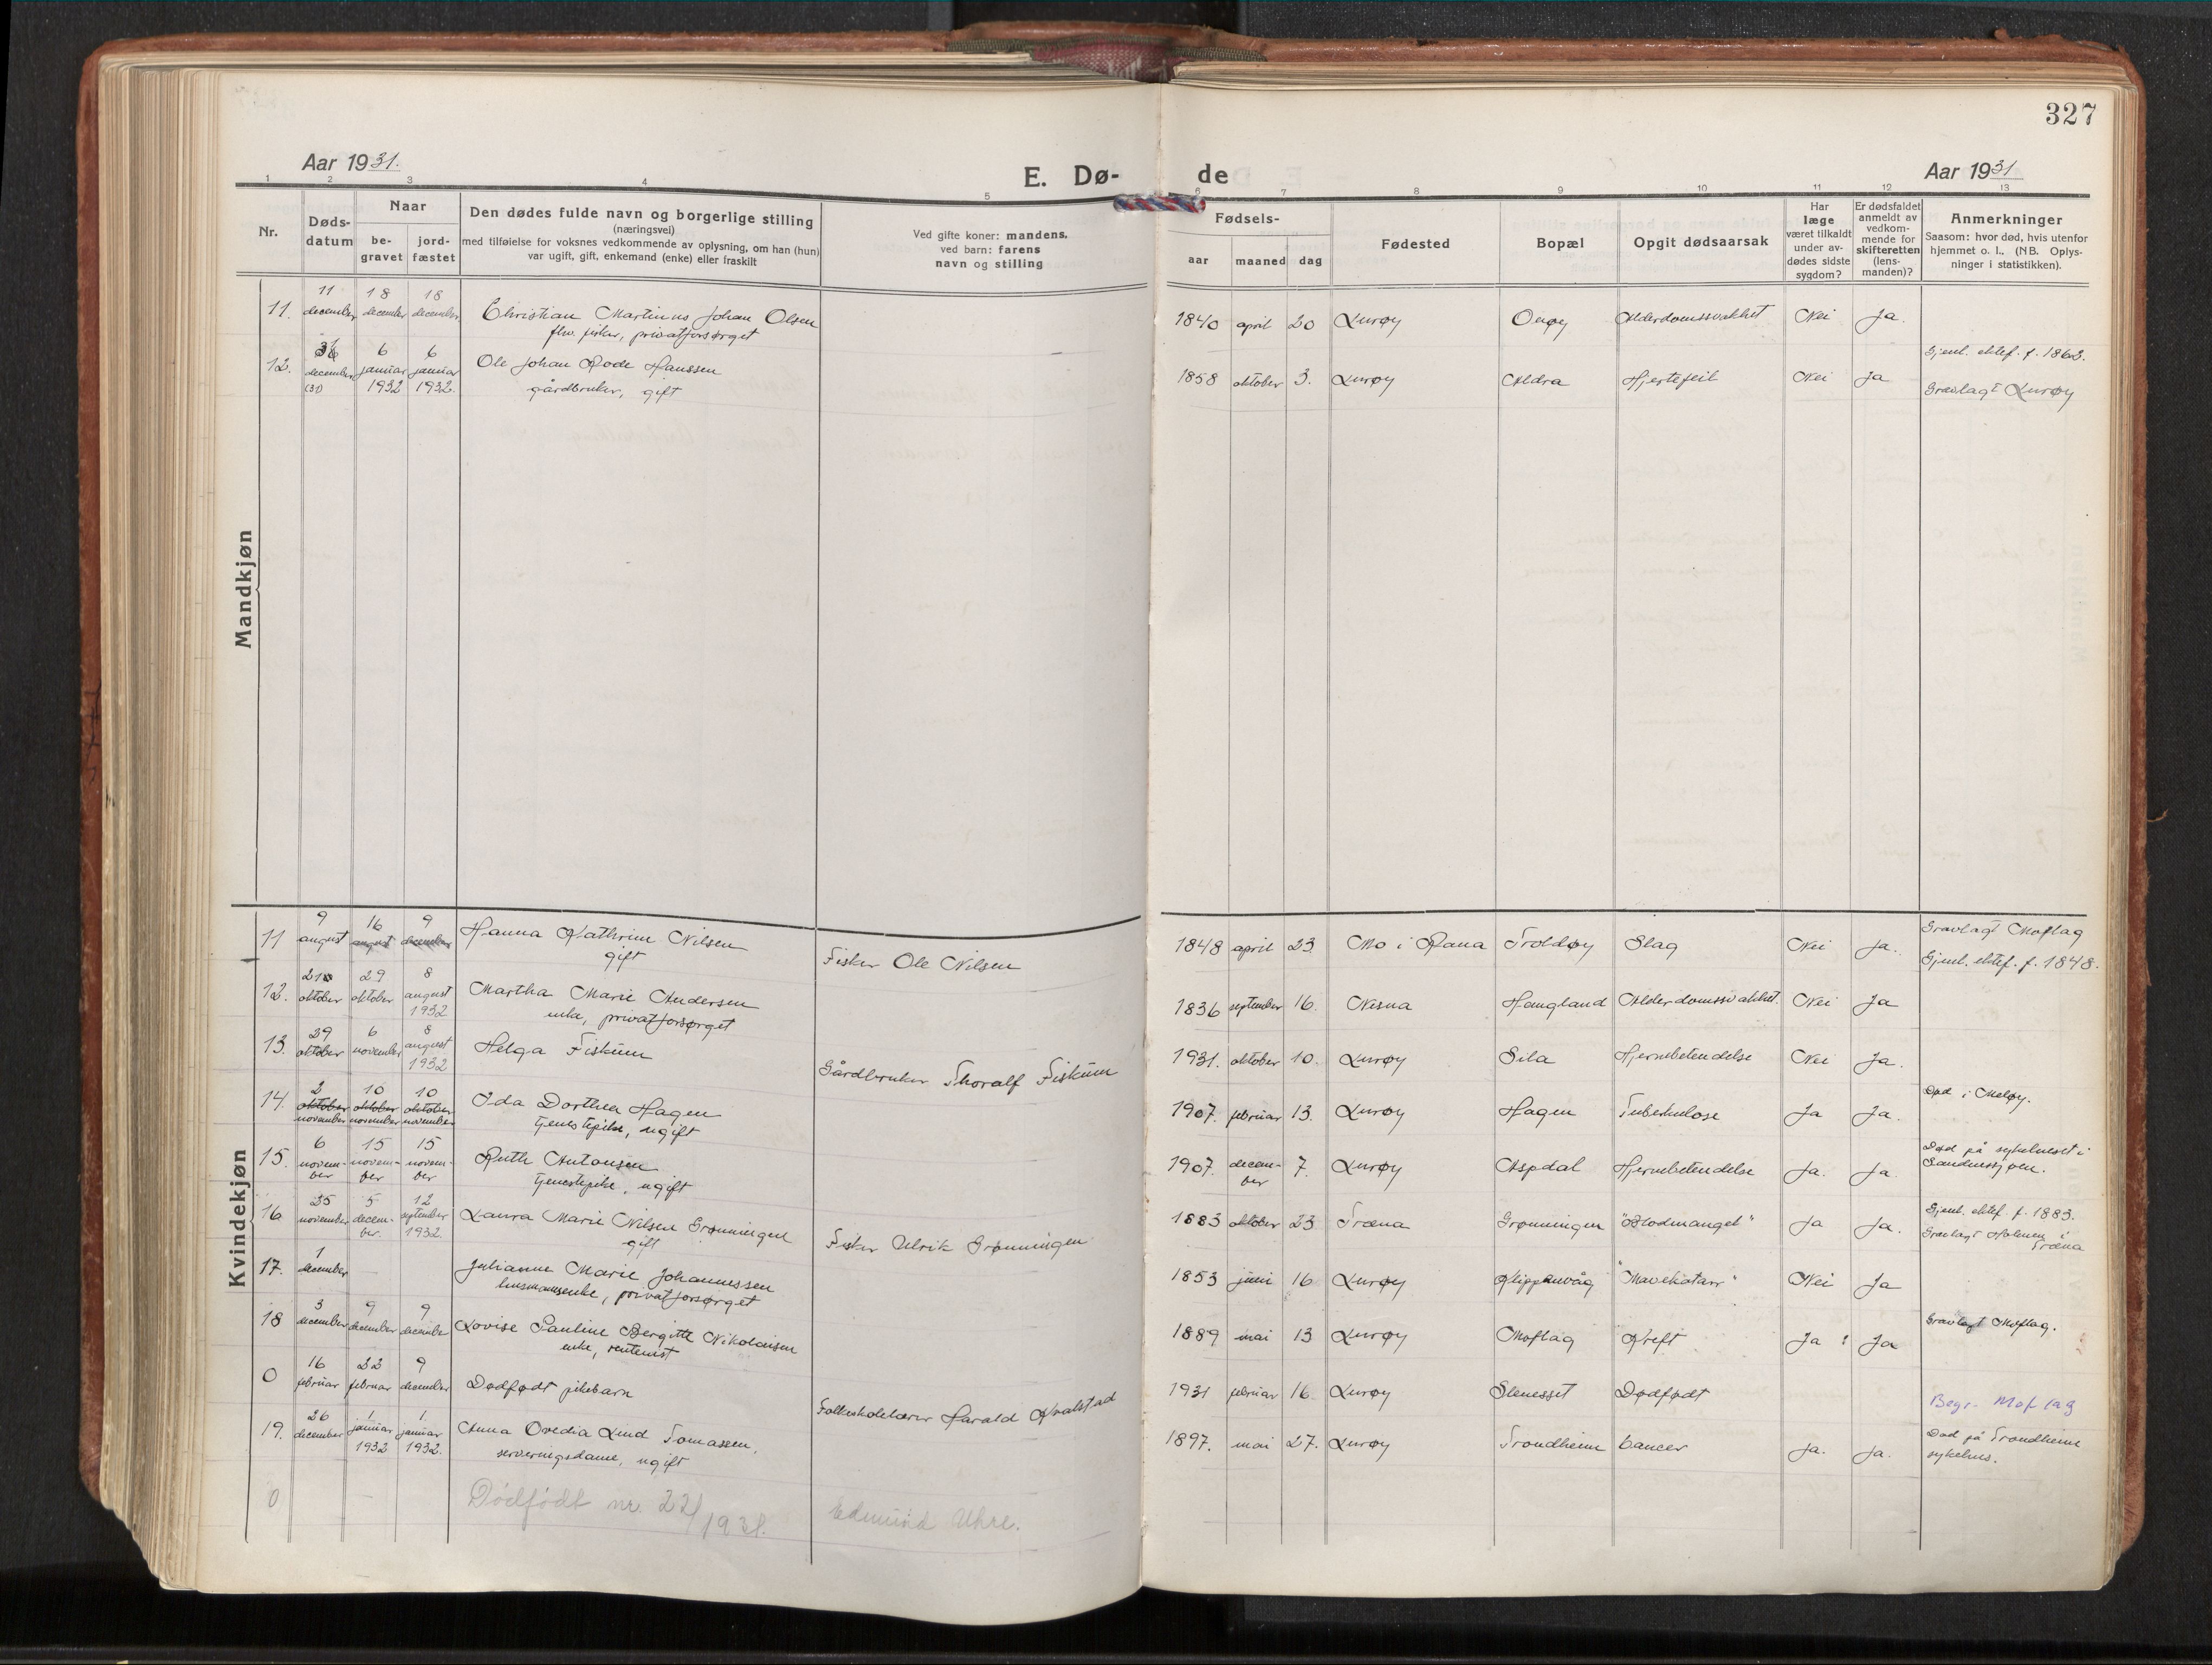 327
Aar 1931.
E. Dø-
de
Aar 1931
1 2 3 4 5 6 7 8 9 10 11 12 13
Nr.
Døds-
datum
Naar
be-
gravet
jord-
fæstet
Den dødes fulde navn og borgerlige stilling
(næringsvei)
med tilføielse for voksnes vedkommende av oplysning, om han (hun)
var ugift, gift, enkemand (enke) eller fraskilt
Ved gifte koner: mandens.
ved barn: farens
navn og stilling
Fødsels-
aar maaned dag
Fødested
Bopæl
Opgit dødsaarsak
Har
læge
været tilkaldt
under av-
dødes sidste
sygdom?
Er dødsfaldet
anmeldt av
vedkom-
mende for
skifteretten
(lens-
manden)?
Anmerkninger
Saasom: hvor død, hvis utenfor
hjemmet o. l., (NB. Oplys-
ninger i statistikken).
Mandkjøn
11. 11 december 18 december 18 december Christian Martinus Johan Olsen 1840 april 20 Lurøy Onøy Alderdomssvakhet Nei Ja.
fhv. fisker, privatforsørget
12. december (31) 6 januar 1932 6 januar 1932. Ole Johan Rode Hanssen 1858 oktober 3. Lurøy Aldra Hjertefeil Nei Ja Gjenl. ektef. f. 1862.
gårdbruker, gift Gravlagt Lurøy
Kvindekjøn
11 9 august 16 august 9 december Hanna Kathrine Nilsen Fisker Ole Nilsen 1848 april 23 Mo i Rana Troldøy Slag Nei Ja. Gravlagt Moflag
gift Gjenl. ektef. f. 1848.
12. 21 oktober 29 oktober 8 august 1932 Martha Marie Andersen 1836 september 16. Nesna Haugland Alderdomssvakhet. Nei Ja
enke, privatforsørget
13. 29 oktober 6 november 8 august 1932 Helga Fiskum Gårdbruker Thoralf Fiskum 1931. oktober 10. Lurøy Sila Hjernebetendelse Nei Ja.
14. 2 oktober november 10 oktober november 10 oktober november Ida Dorthea Hagen 1907. februar 13. Lurøy Hagen Tuberkulose Ja Ja. Død i Meløy.
tjenestepike, ugift
15. 6 novem-ber 15 novem-ber 15 novem-ber Ruth Antonsen 1907. decem-ber 7. Lurøy Aspdal Hjernebetendelse Ja. Ja. Død på sykehuset i
tjenestepike, ugift Sandnessjøen.
16. 25 november 5 decem-ber. 12 september 1932. Laura Marie Nilsen Grønningen Fisker Ulrik Grønningen 1883 oktober 23 Træna Grønningen "Blodmangel" Ja Ja. Gjenl. ektef. f. 1883.
gift Gravlagt Holmen i Træna
17. 1 december — Julianne Marie Johannessen 1853 juni 16 Lurøy Klippenvåg "Mavekatarr" Nei Ja
husmannsenke, privatforsørget
18 3 december 9 december 9 december Lovise Pauline Bergitte Nikolaisen 1889 mai 13 Lurøy Moflag Kreft Ja Ja Gravlagt Moflag.
enke, rentenist
0 16 februar 22 februar 9 december Dødfødt pikebarn Folkeskolelærer Harald Kvalstad 1931 februar 16. Lurøy Stenesset Dødfødt Begr. Moflag
19. 26 december 1 januar 1932 1. januar 1932. Anna Ovedia Lind Tomassen, 1897. mai 27. Lurøy Trondheim Cancer Ja. Ja. Død på Trondheim
serveringsdame, ugift sykehus.
0 — Dödfödt nr. 22/1931. Edmund Uhre.